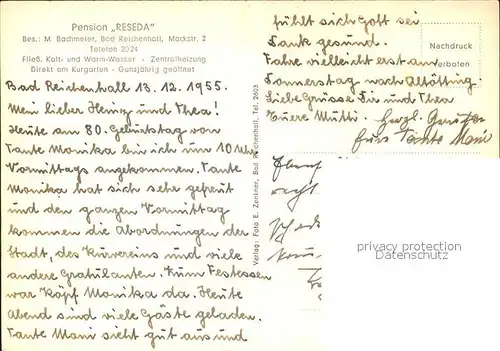 Pension „RESEDA"
Bes.: M. Bachmeier, Bad Reichenhall, Mackstr. 2
Telefon 2024
Fließ. Kalt- und Warm-Wasser - Zentralheizung
Direkt am Kurgarten - Ganzjährig geöffnet
Bad Reichenhall 13. 12. 1955.
Mein lieber Heinz und Thea!
Heute am 80. Geburtstag von
Tante Monika bin ich um 10 Uhr
Vormittags angekommen. Tante
Monika hat sich sehr gefreut
und den ganzen Vormittag
kommen die Abordnungen der
Stadt, des Kürvereins und viele
andere Gratulanten. Zum Festessen
war Köpf Monika da. Heute
Abend sind viele Gäste geladen.
Tante Moni sieht gut aus und
Verlag: Foto E. Zenkner, Bad Reichenhall, Tel. 2603
fühlt sich Gott sei
Dank gesund.
Fahre vielleicht erst am
Donnerstag nach Altötting.
Liebe Grüsse Dir und Thea
Euere Mutti.
Herzl. Grüße
Eure Tante Moni
Nachdruck
verboten
privacy protection
Datenschutz